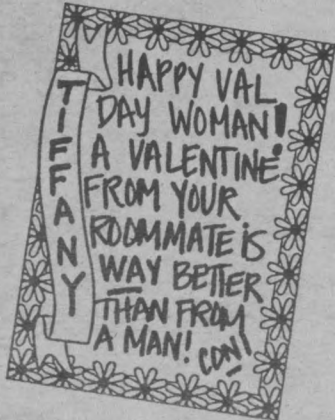 TIFFANY
HAPPY VAL
DAY WOMAN!
A VALENTINE
FROM YOUR
ROOMMATE iS
WAY BETTER
THAN FROM
A MAN!